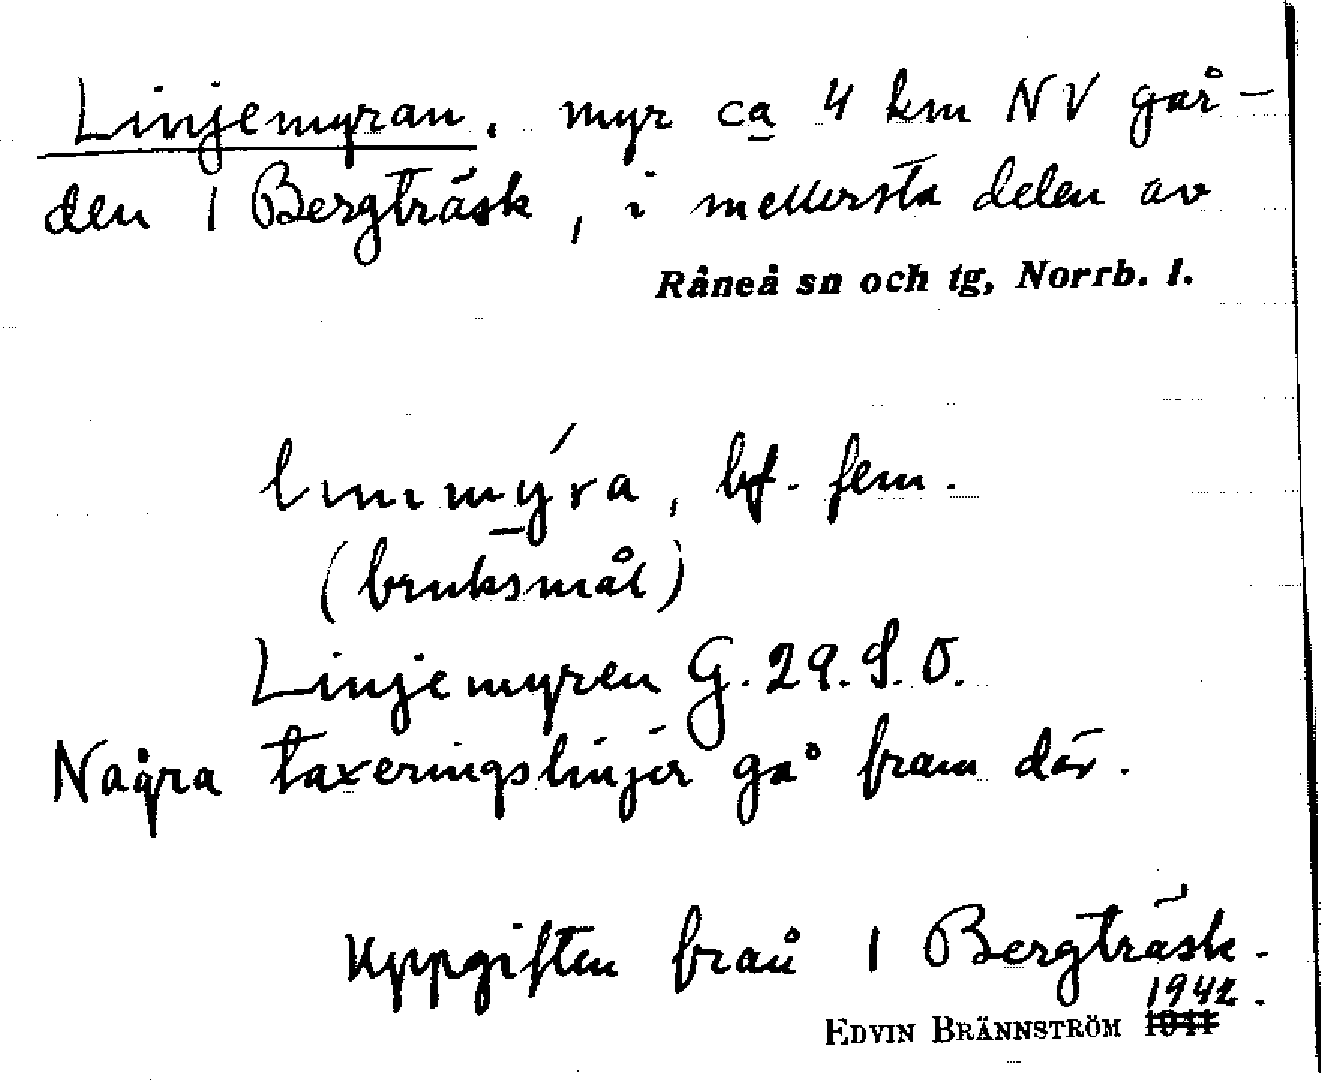 Linjemyran, myr ca 4 km NV går-
den 1 Bergträsk, i mellersta delen av
Råneå sn och tg, Norrb. l.
, bf. fem.
(bruksmål)
Linjemyren G. 29. S. O.
Några taxeringslinjer gå fram där.
Uppgiften från 1 Bergträsk.
1942.
EDVIN BRÄNNSTRÖM 1941